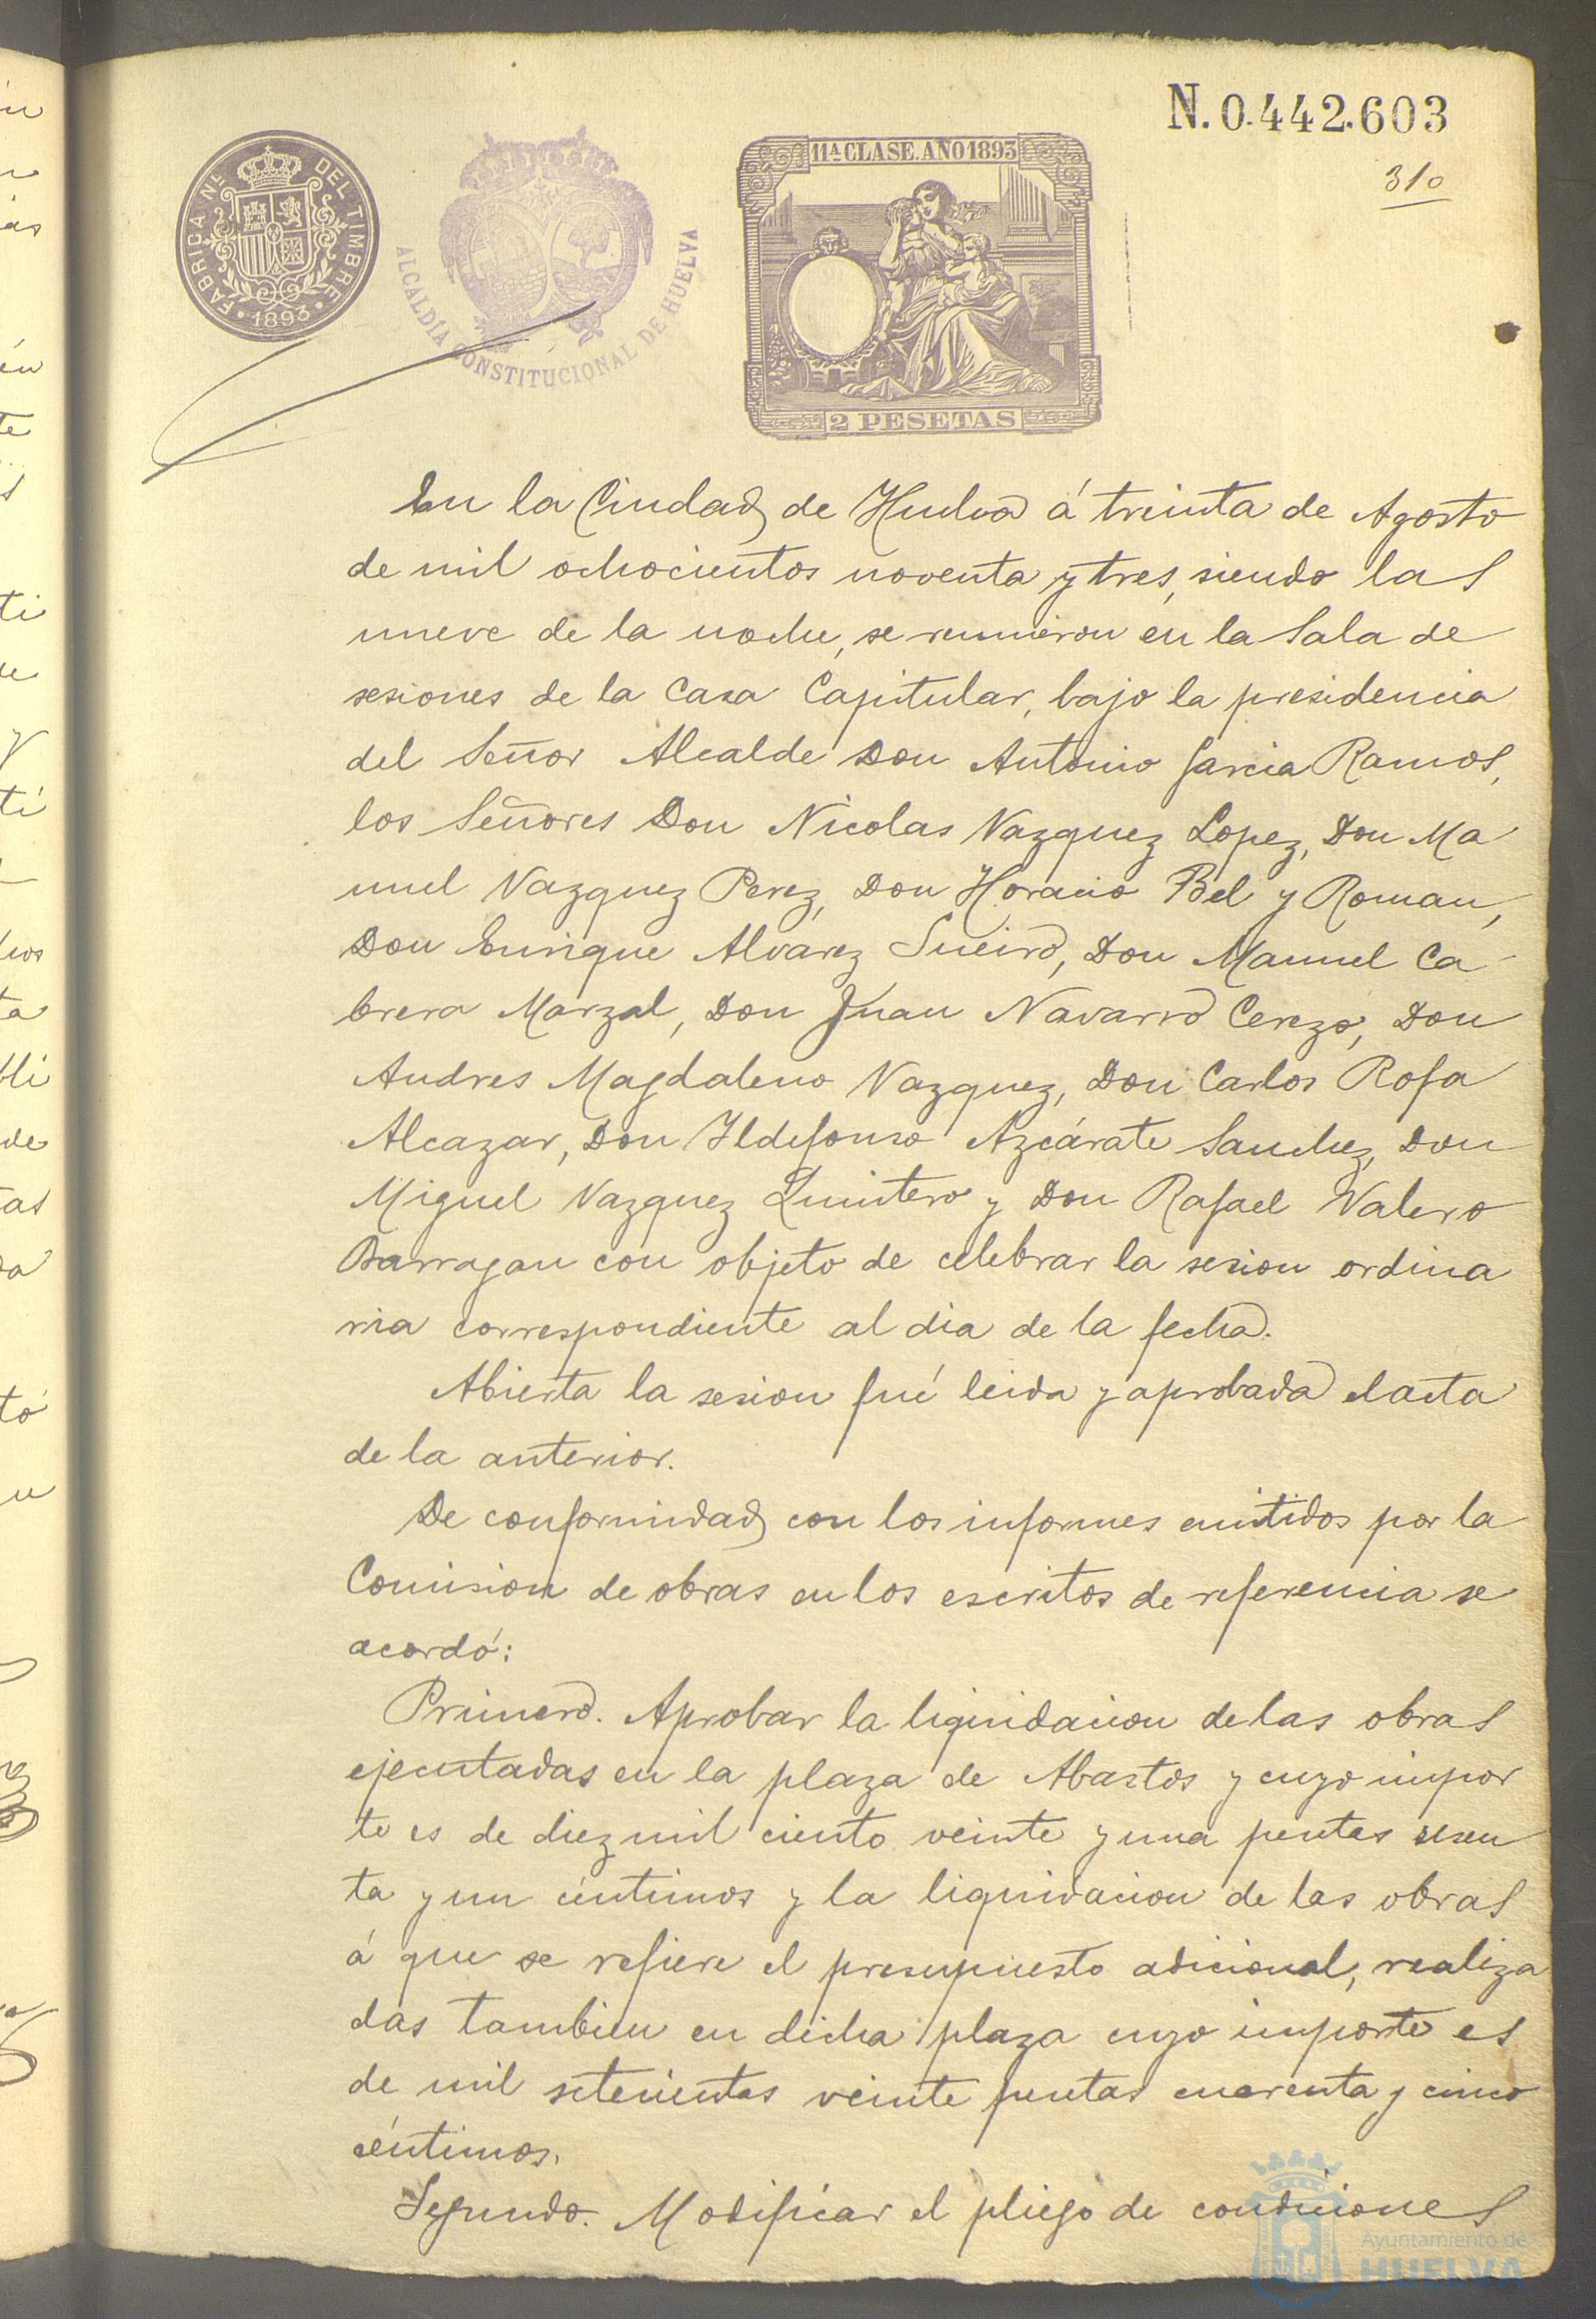 N. 0.442.603
310
FABRICA NL. DEL TIMBRE
1893
ALCALDÍA CONSTITUCIONAL DE HUELVA
11A CLASE. AÑO 1893
2 PESETAS
En la Ciudad de Huelva á treinta de Agosto
de mil ochocientos noventa y tres, siendo las
nueve de la noche, se reunieron en la Sala de
sesiones de la Casa Capitular, bajo la presidencia
del Señor Alcalde Don Antonio Garcia Ramos,
los Señores Don Nicolas Vazquez Lopez, Don Ma
nuel Vazquez Perez, Don Horacio Bel y Roman,
Don Enrique Alvarez Sueiro, Don Manuel Ca-
brera Marzal, Don Juan Navarro Cerezo, Don
Andres Magdaleno Vazquez, Don Carlos Rofa
Alcazar, Don Ildefonso Azcárate Sanchez, Don
Miguel Vazquez Quintero y Don Rafael Valero
Barragan con objeto de celebrar la sesion ordina
ria correspondiente al dia de la fecha.
Abierta la sesion fué leida y aprobada el acta
de la anterior.
De conformidad con los informes emitidos por la
Comision de obras en los escritos de referencia se
acordó:
Primero. Aprobar la liquidacion de las obras
ejecutadas en la plaza de Abastos y cuyo impor
te es de diez mil ciento veinte y una pesetas sesen
ta y un céntimos y la liquidacion de las obras
á que se refiere el presupuesto adicional, realiza
das tambien en dicha plaza cuyo importe es
de mil setecientas veinte pesetas cuarenta y cinco
céntimos.
Segundo. Modificar el pliego de condiciones
Ayuntamiento de
HUELVA